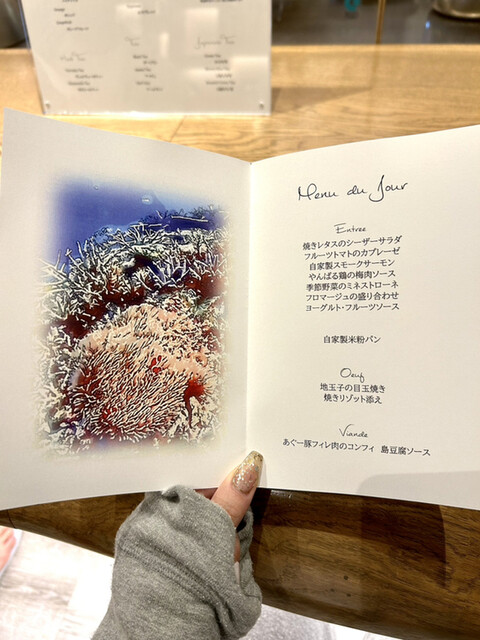 Tea
Japanese Tea
Menu du Jour
Entree
焼きレタスのシーザーサラダ
フルーツトマトのカプレーゼ
自家製スモークサーモン
やんばる鶏の梅肉ソース
季節野菜のミネストローネ
フロマージュの盛り合わせ
ヨーグルト・フルーツソース
自家製米粉パン
Oeuf
地玉子の目玉焼き
焼きリゾット添え
Viande
あぐー豚フィレ肉のコンフィ 島豆腐ソース